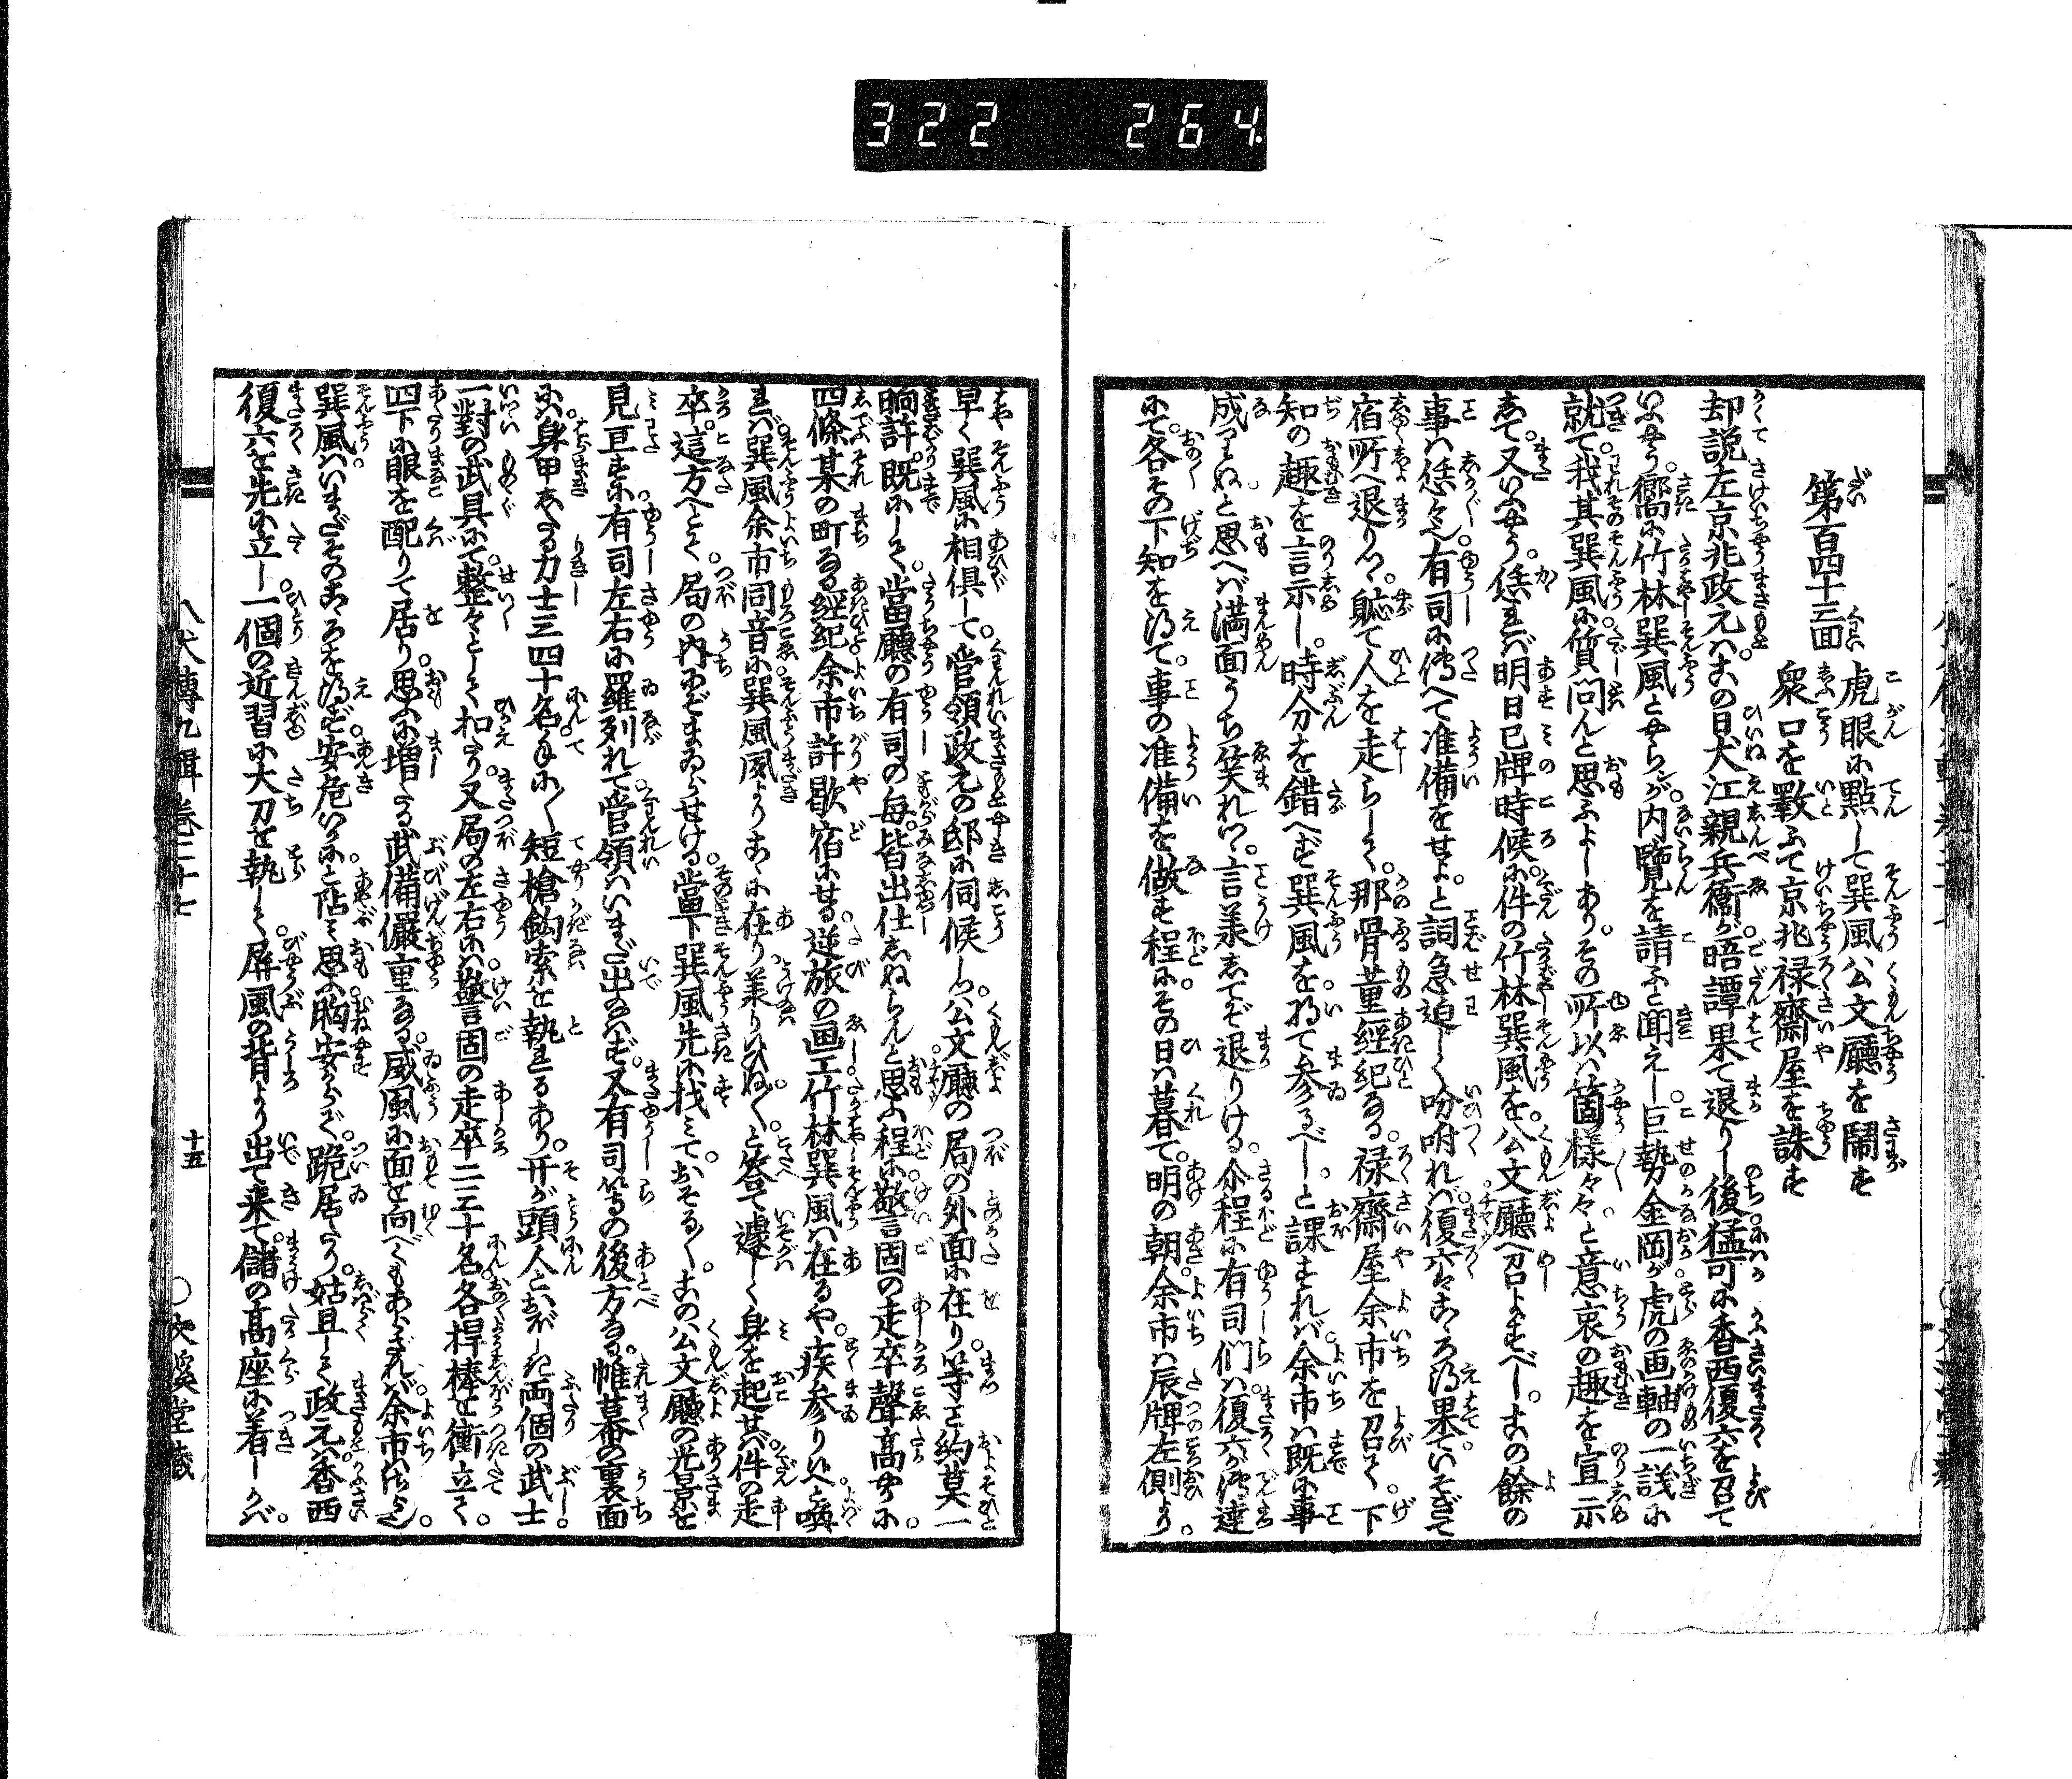 322 264
第百四十三回
虎眼に點して巽風公文廳を鬧す
衆口を斅ふて京兆禄齋屋を誅す
却説左京兆政元ハこの日犬江親兵衞が晤譚果て退りし後猛可に香西復六を召て
いふやう嚮に竹林巽風とやらンが内覽を請ふと聞えし巨勢金岡が虎の画軸の一議に
就て我其巽風に質問んと思ふよしありその所以ハ箇樣々々と意衷の趣を宣示
して又いふやう恁れバ明日巳牌時候に件の竹林巽風を公文廳へ召よすべしこの餘の
事ハ恁々也有司に傳へて准備をせよと詞急迫しく吩咐れバ復六ハこゝろ得果ていそぎて
宿所へ退りつゝ軈て人を走らして那骨董經紀なる禄齋屋余市を召て下
知の趣を言示し時分を錯へず巽風を將て参るべしと課すれバ余市ハ既に事
成りぬと思へバ滿面うち笑れつゝ言承してぞ退りける尒程に有司們ハ復六が傳達
にて各その下知を得て事の准備を做す程にその日ハ暮て明の朝余市ハ辰牌左側より
早く巽風に相俱して管領政元の邸に伺候しつ公文廳の局の外面に在り等こと約莫一
晌許既にして當廳の有司の毎皆出仕しぬらんと思ふ程に警固の走卒聲高やかに
四條某の町なる經紀余市許歇宿にせる逆旅の画工竹林巽風ハ在るや疾参りいへと喚
れバ巽風余市同音に巽風夙よりこゝに在り承りいひぬと答て遽しく身を起せバ件の走
卒這方へとて局の内にぞまゐらせける當下巽風先に找ミておそる〳〵この公文廳の光景を
見亘すに有司左右に羅列れて管領ハいまだ出給はず又有司等の後方なる帷幕の裏面
にハ身甲したる力士三四十名手に〳〵短槍鉤索を執れるあり开が頭人とおぼしき両個の武士
一對の武具にて整々として扣たり又局の左右にハ警固の走卒二三十名各桿棒を衝立て
四下に眼を配りて居り思ふに増たる武備儼重なる威風に面を向べくもあらざれバ余市ハさら也
巽風ハいまだそのこゝろを得ず安危いかにと阽ミ思ふ胸安からで跪居たり姑且して政元ハ香西
復六を先に立し一個の近習に大刀を執して屏風の背より出て来て儲の髙座に着しかバ
八犬傳九輯卷二十七
十五
○文溪堂藏